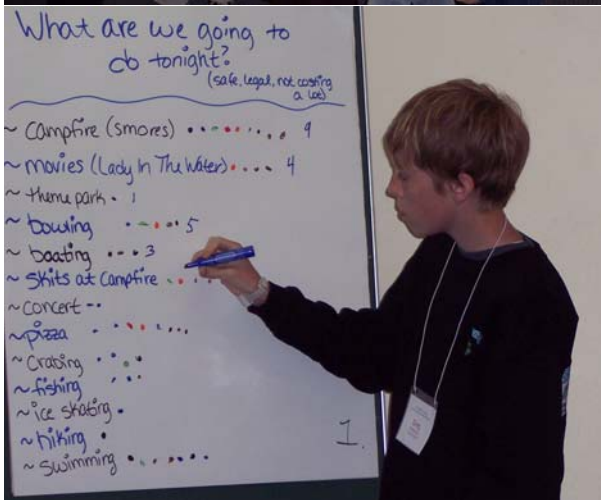 What are we going to
do tonight?
(safe, legal, not costing
a lot)
~ Campfire (smores) 9
~ movies (Lady In The Water) 4
~ theme park 1
~ bowling 5
~ boating 3
~ Skits at Campfire
~ concert
~ pizza
~ Crabing
~ fishing
~ ice skating
~ hiking
~ Swimming
1.